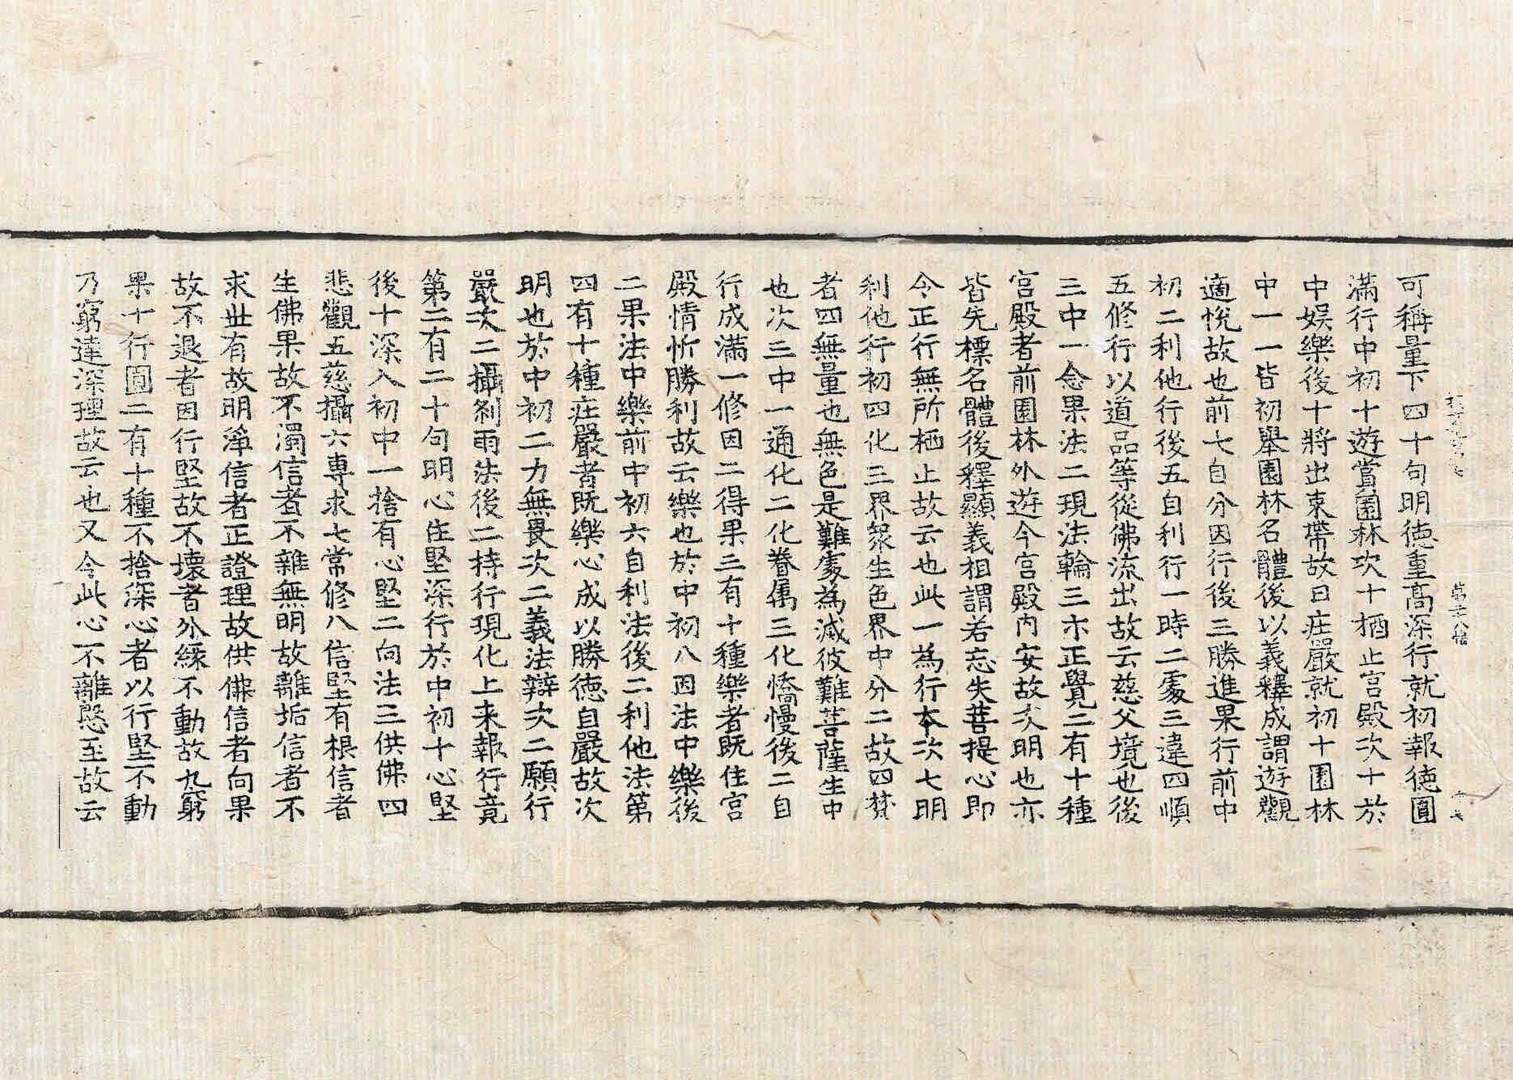 可稱量下四十句明德重高深行就初報德圓
滿行中初十遊賞園林次十栖止宮殿次十於
中娛樂後十將出束帶故曰庄嚴就初十園林
中一一皆初舉園林名體後以義釋成謂遊觀
適悅故也前七自分因行後三勝進果行前中
初二利他行後五自利行一時二處三違四順
五修行以道品等從佛流出故云慈父境也後
三中一念果法二現法輪三亦正覺二有十種
宮殿者前園林外遊今宮殿內安故次明也亦
皆先標名體後釋顯義相謂若忘失菩提心即
今正行無所栖止故云也此一為行本次七明
利他行初四化三界衆生色界中分二故四梵
者四無量也無色是難處為滅彼難菩薩生中
也次三中一通化二化眷属三化憍慢後二自
行成滿一修因二得果三有十種樂者既住宮
殿情忻勝利故云樂也於中初八因法中樂後
二果法中樂前中初六自利法後二利他法第
四有十種庄嚴者既樂心成以勝德自嚴故次
明也於中初二力無畏次二義法辯次二願行
嚴次二攝剎雨法後二持行現化上来報行竟
第二有二十句明心住堅深行於中初十心堅
後十深入初中一捨有心堅二向法三供佛四
悲觀五慈攝六專求七常修八信堅有根信者
生佛果故不濁信者不雜無明故離垢信者不
求世有故明淨信者正證理故供佛信者向果
故不退者因行堅故不壞者外緣不動故九窮
果十行圓二有十種不捨深心者以行堅不動
乃窮達深理故云也又令此心不離慇至故云